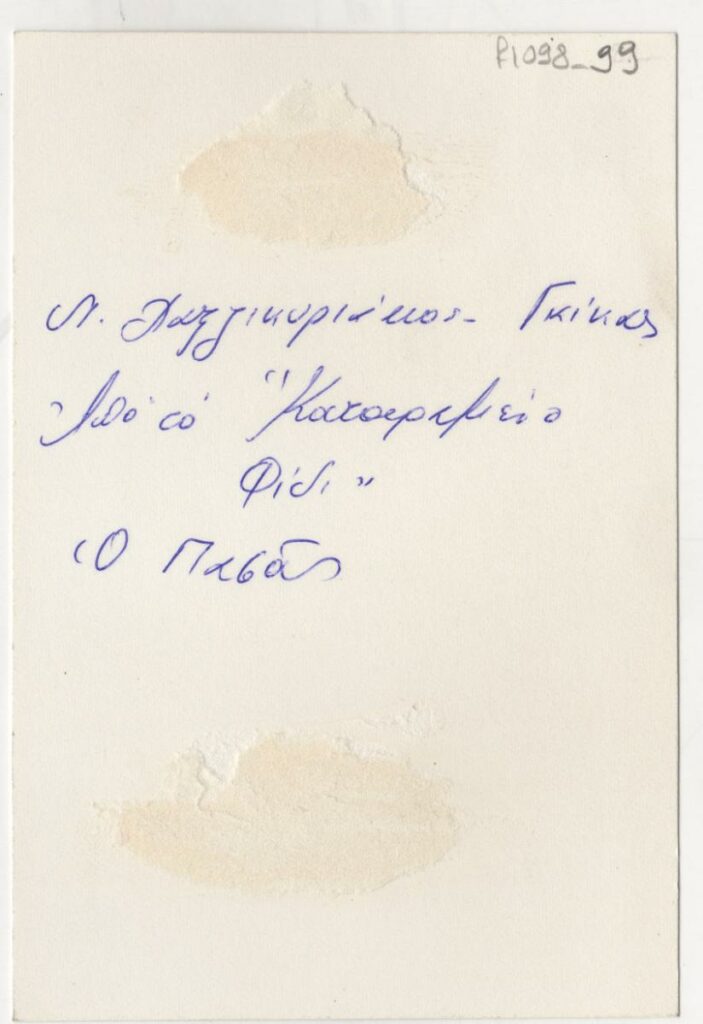 P1098_99
Ν. Χατζηκυριάκος - Γκίκας
Ἀπό τό "Καταραμένο
Φίδι"
Ὁ Πασᾶς